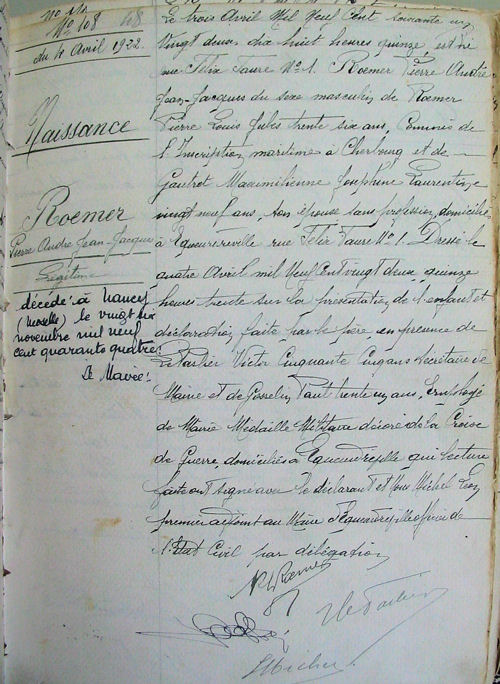 Nº 108 108
du 4 Avril 1922.
Naissance
Roemer
Pierre Andre Jean-Jacques
Légitime
décédé à Nancy
(Moselle) le vingt six
novembre mil neuf
cent quarante quatre.
Le Maire:
Le trois Avril Mil Neuf Cent
Vingt deux, dix huit heures quinze est né
rue Félix Faure Nº 1. Roemer Pierre André
Jean-Jacques du sexe masculin, de Roemer
Pierre Louis Jules trente six ans, Commis de
l'Inscription maritime à Cherbourg et de
Gautret Maximilienne Joséphine Laurentine
vingt neuf ans, son épouse sans profession, domiciliés
à Equeurdreville rue Félix Faure Nº 1. Dressé le
quatre Avril mil Neuf Cent vingt deux, quinze
heures trente sur la présentation de l'enfant et
déclaration faite par le père en présence de
Le Tarlier Victor Cinquante Cinq ans Secrétaire de
Mairie et de Gosselin Paul trente ans, Employé
de Mairie Médaille Militaire décoré de la Croix
de Guerre, domiciliés à Equeurdreville qui lecture
faite ont signé avec le déclarant et Nous Michel
premier adjoint au Maire d'Equeurdreville officier de
l'Etat Civil par délégation
Roemer
Michel